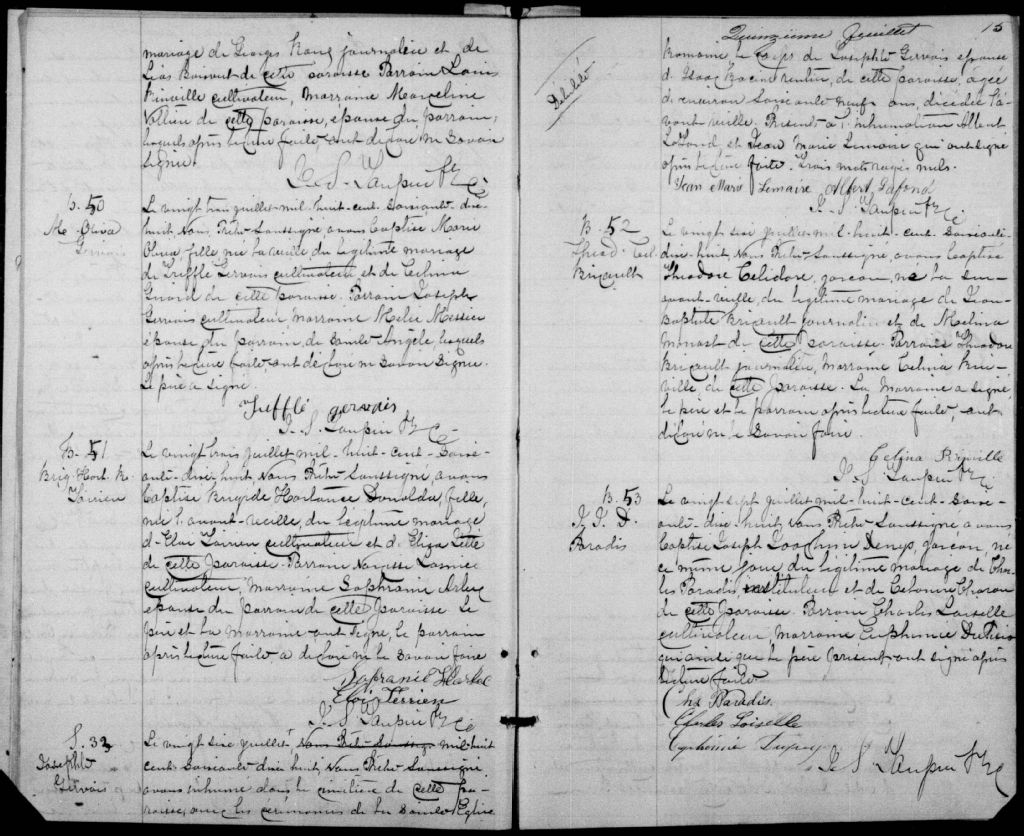 mariage de Georges journalier et de
de cette paroisse Parrain Louis
Rinville cultivateur, Marraine Marceline
de cette paroisse, épouse du parrain,
lesquels après lecture faite ont déclaré ne savoir
signer.
J. S. Taupin Ptre Cé
B. 50
M. Oliva
Gervais
Le vingt trois juillet mil-huit-cent-soixante-dix-
huit, Nous Prêtre Soussigné avons baptisé Marie
Oliva fille née la veille du légitime mariage
de Trefflé Gervais cultivateur et de
Girard de cette paroisse. Parrain Joseph
Gervais cultivateur Marraine Messier
épouse du parrain, de Sainte Angèle, lesquels
après lecture faite ont déclaré ne savoir signer.
Le père a signé.
Trefflé gervais
J. S. Taupin Ptre Cé
B. 51
Brig. Hort. R.
Therrien
Le vingt trois juillet mil-huit-cent-soix-
ante-dix-huit, Nous Prêtre Soussigné, avons
baptisé Brigide Hortance fille,
née l'avant-veille, du légitime mariage
d'Eloi Terrien cultivateur et d'Eliza
de cette paroisse. Parrain Narcisse
cultivateur, Marraine Sophranie
épouse du parrain de cette paroisse. Le
père et la marraine ont signé, le parrain
après lecture faite a déclaré ne le savoir faire
Eloi Terrien
J. S. Taupin Ptre Cé
S. 33
Josephte
Gervais
Le vingt six juillet, Nous Prêtre Soussigné mil huit
cent soixante dix huit, Nous Prêtre Soussigné
avons inhumé dans le cimetière de cette pa-
roisse, avec les cérémonies de la Sainte Eglise
Quinzième feuillet 15
Romaine le corps de Josephte Gervais épouse
d'Isaac Racine rentier, de cette paroisse, agée
d'environ soixante neuf ans, décédée l'a-
vant veille. Présents à l'inhumation Albert
Lafond, et Jean Marie Lemaire qui ont signé
après lecture faite. Trois mots rayés nuls.
Jean Marie Lemaire Albert Lafond
J. S. Taupin Ptre Cé
B. 52
Théod. Cel.
Bricault
Le vingt six juillet mil-huit-cent-soixante-
dix-huit, Nous Prêtre Soussigné, avons baptisé
Théodore Celidore, garçon, né la
avant-veille, du légitime mariage de Jean
Baptiste Bricault journalier et de Melina
Monast de cette paroisse. Parrain Théodore
Bricault journalier, Marraine Celina Rin-
ville de cette paroisse. La Marraine a signé,
le père et le parrain après lecture faite ont
déclaré ne le savoir faire.
Celina Rinville
J. S. Taupin Ptre Cé
B. 53
J. J. D.
Paradis
Le vingt sept juillet mil-huit-cent-soix-
ante-dix-huit, Nous Prêtre Soussigné avons
baptisé Joseph Joachim Denys, garçon, né
ce même jour du légitime mariage de Char-
les Paradis, instituteur et de Charon
de cette paroisse. Parrain Charles Loiselle
cultivateur, Marraine Euphémie
qui ainsi que le père présent ont signé après
lecture faite
Chs Paradis
Charles Loiselle
Euphémie Dupuy
J. S. Taupin Ptre Cé